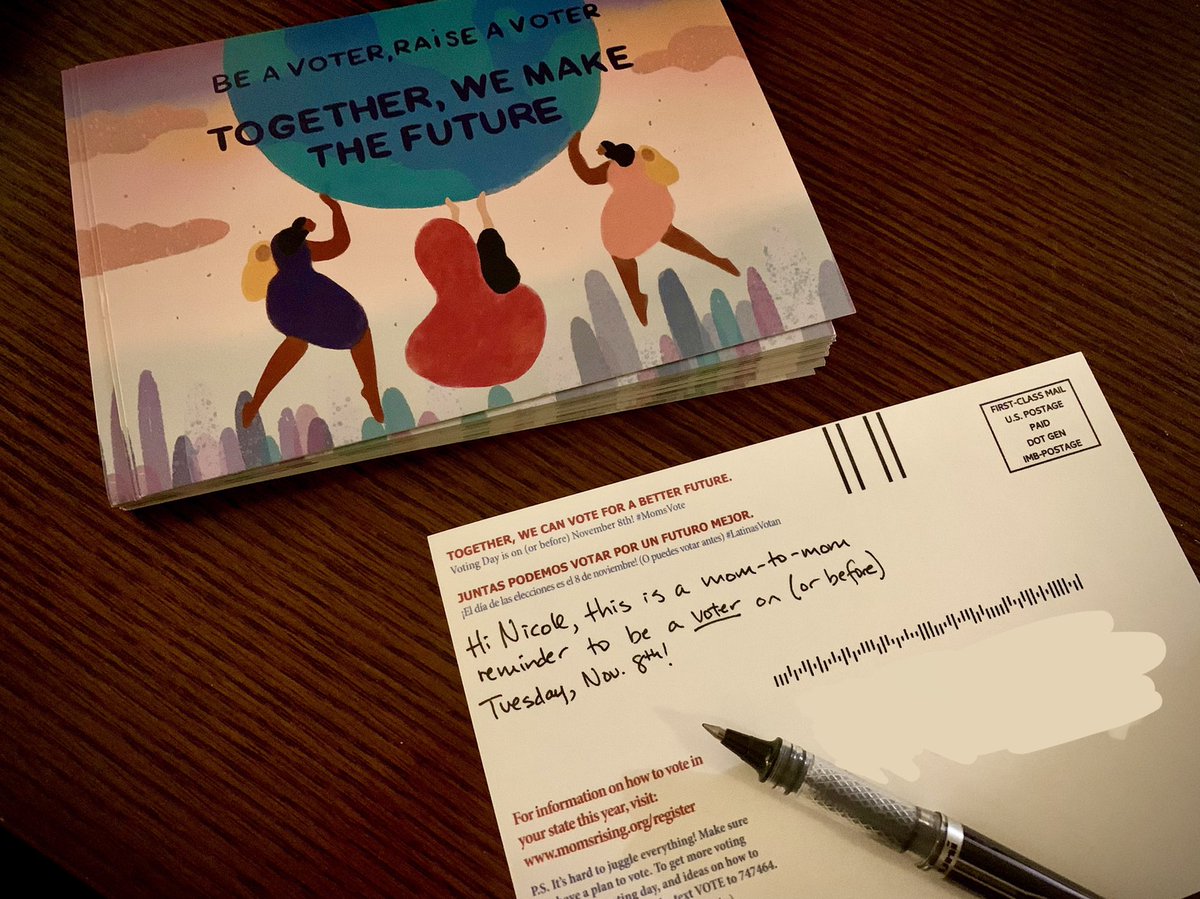 BE A VOTER, RAISE A VOTER
TOGETHER, WE MAKE
THE FUTURE
FIRST-CLASS MAIL
U.S. POSTAGE
PAID
DOT GEN
IMB-POSTAGE
TOGETHER, WE CAN VOTE FOR A BETTER FUTURE.
Voting Day is on (or before) November 8th! #MomsVote
JUNTAS PODEMOS VOTAR POR UN FUTURO MEJOR.
¡El día de las elecciones es el 8 de noviembre! (O puedes votar antes) #LatinasVotan
Hi Nicole, this is a mom-to-mom
reminder to be a voter on (or before)
Tuesday, Nov. 8th!
For information on how to vote in
your state this year, visit:
www.momsrising.org/register
P.S. It's hard to juggle everything! Make sure
have a plan to vote. To get more voting
day, and ideas on how to
text VOTE to 747464.